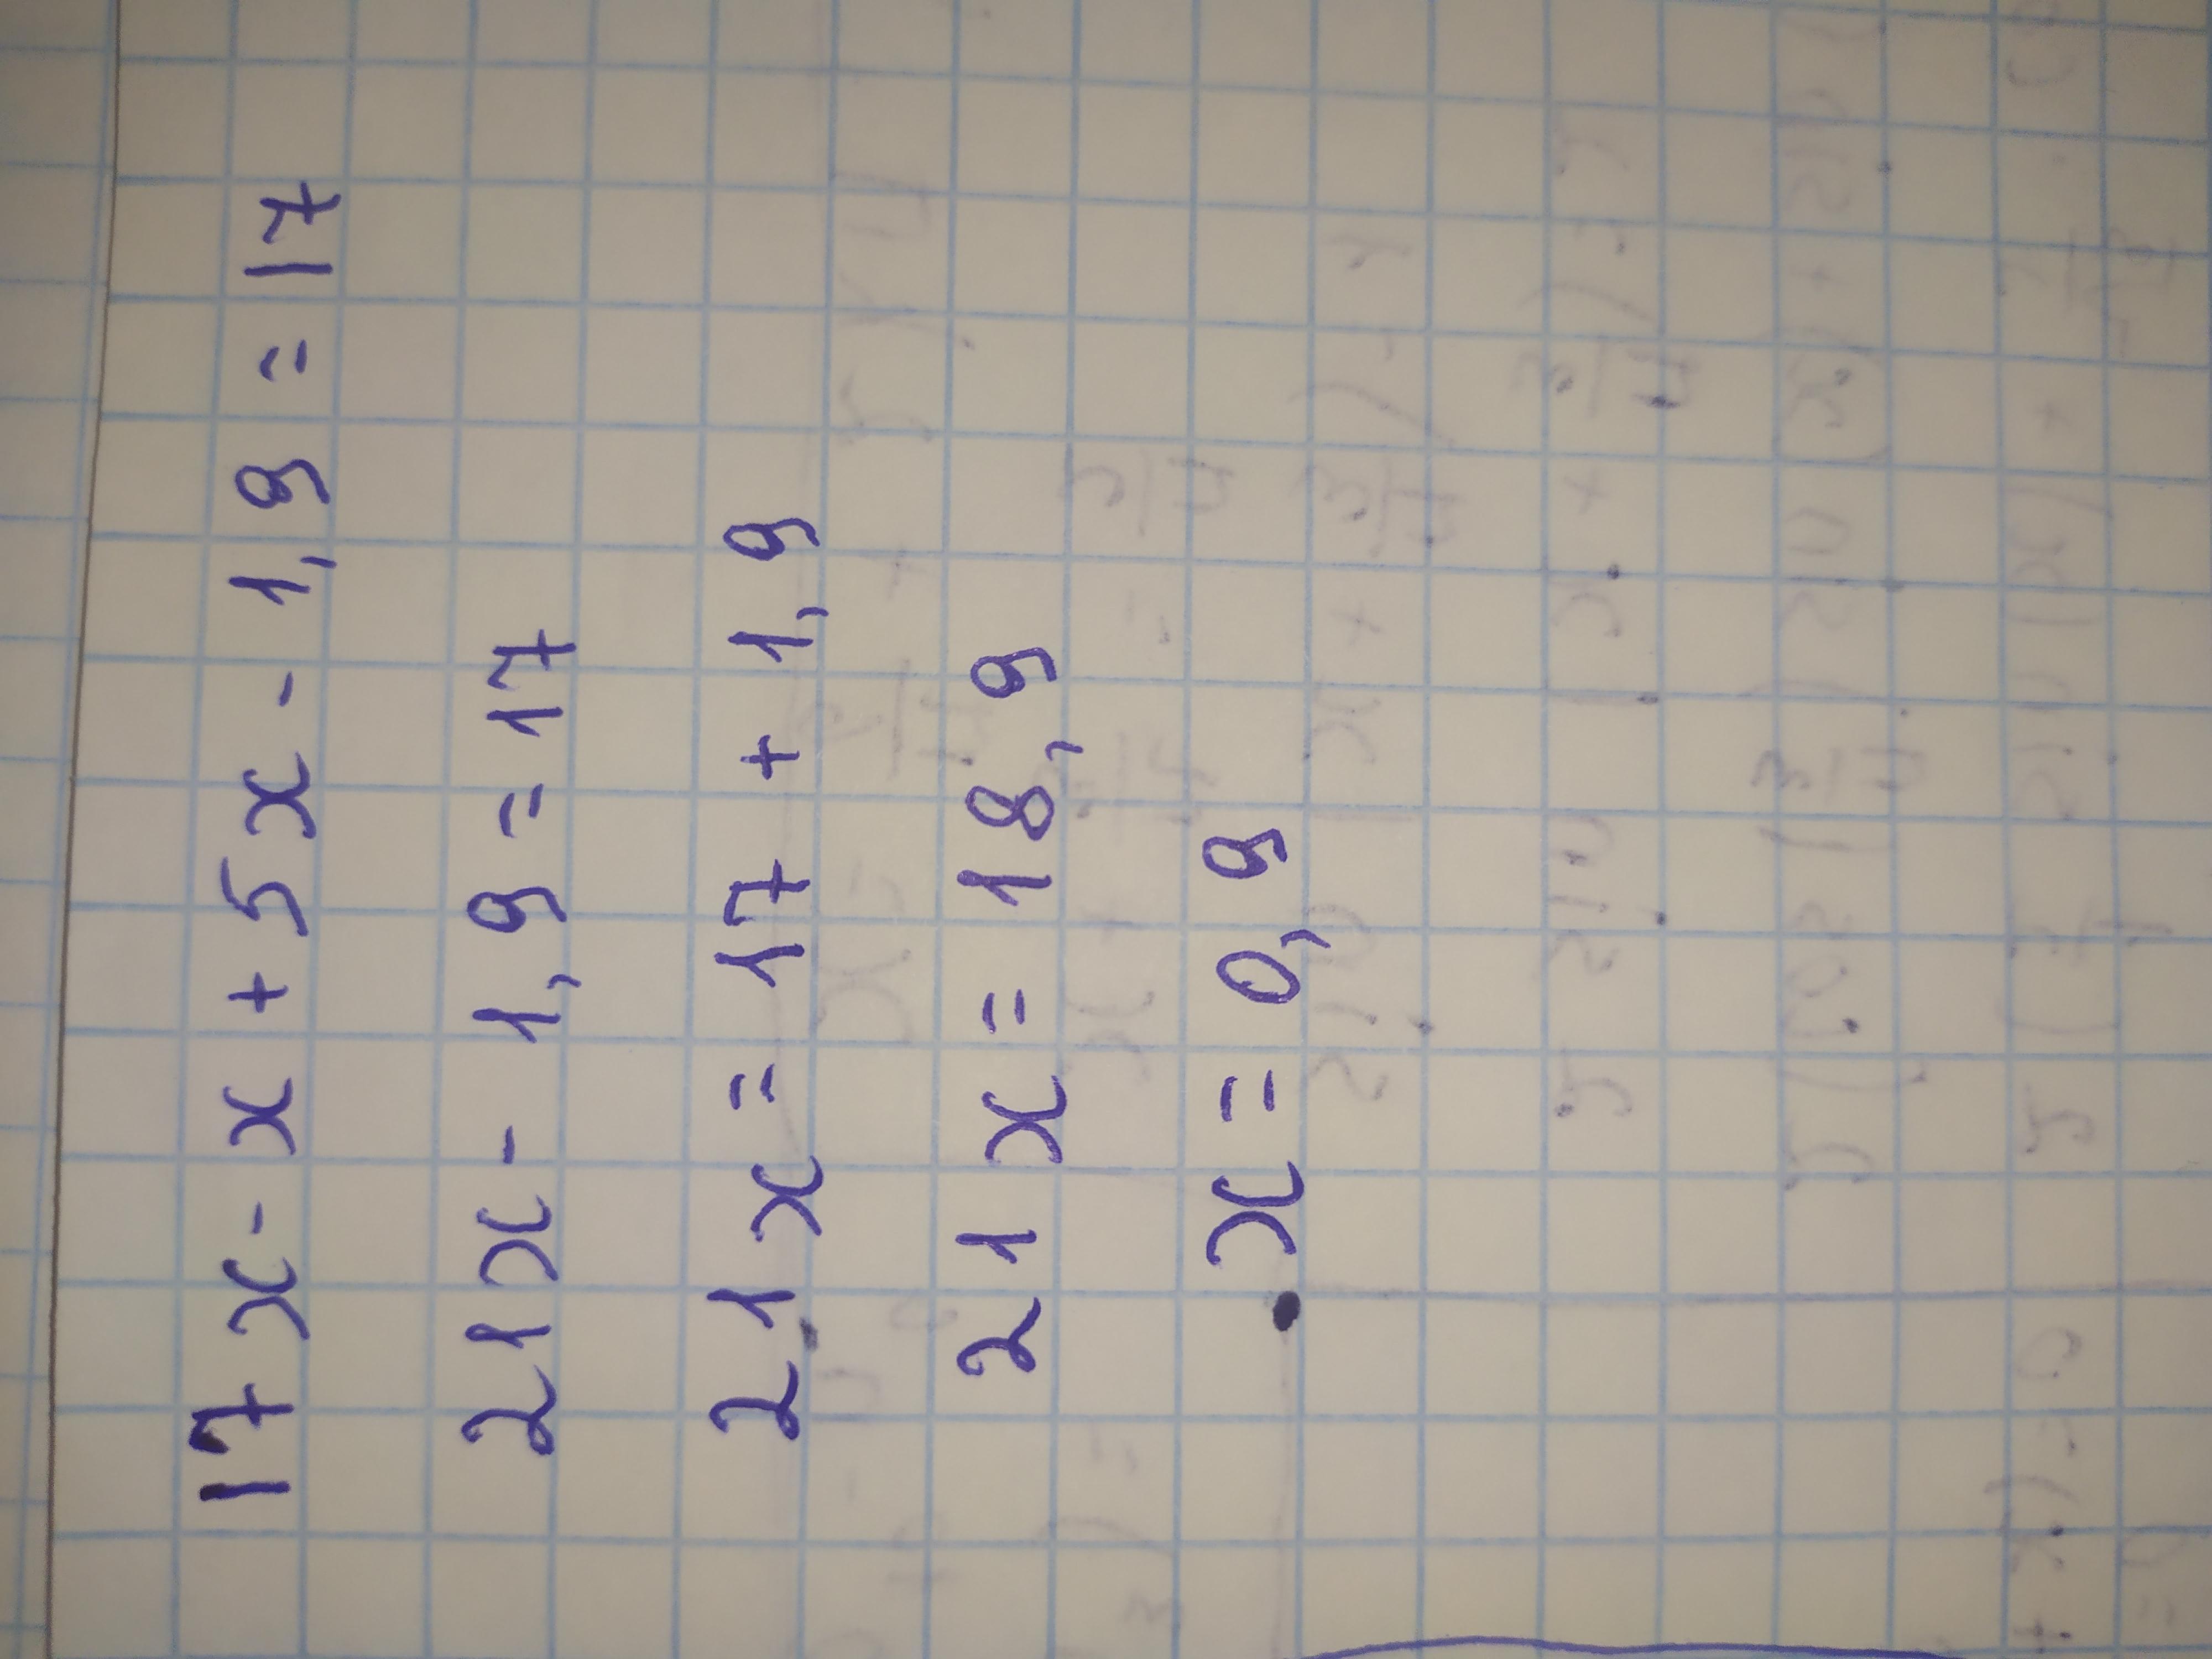 17x - x + 5x - 1,9 = 17
21x - 1,9 = 17
21x = 17 + 1,9
21x = 18,9
x = 0,9